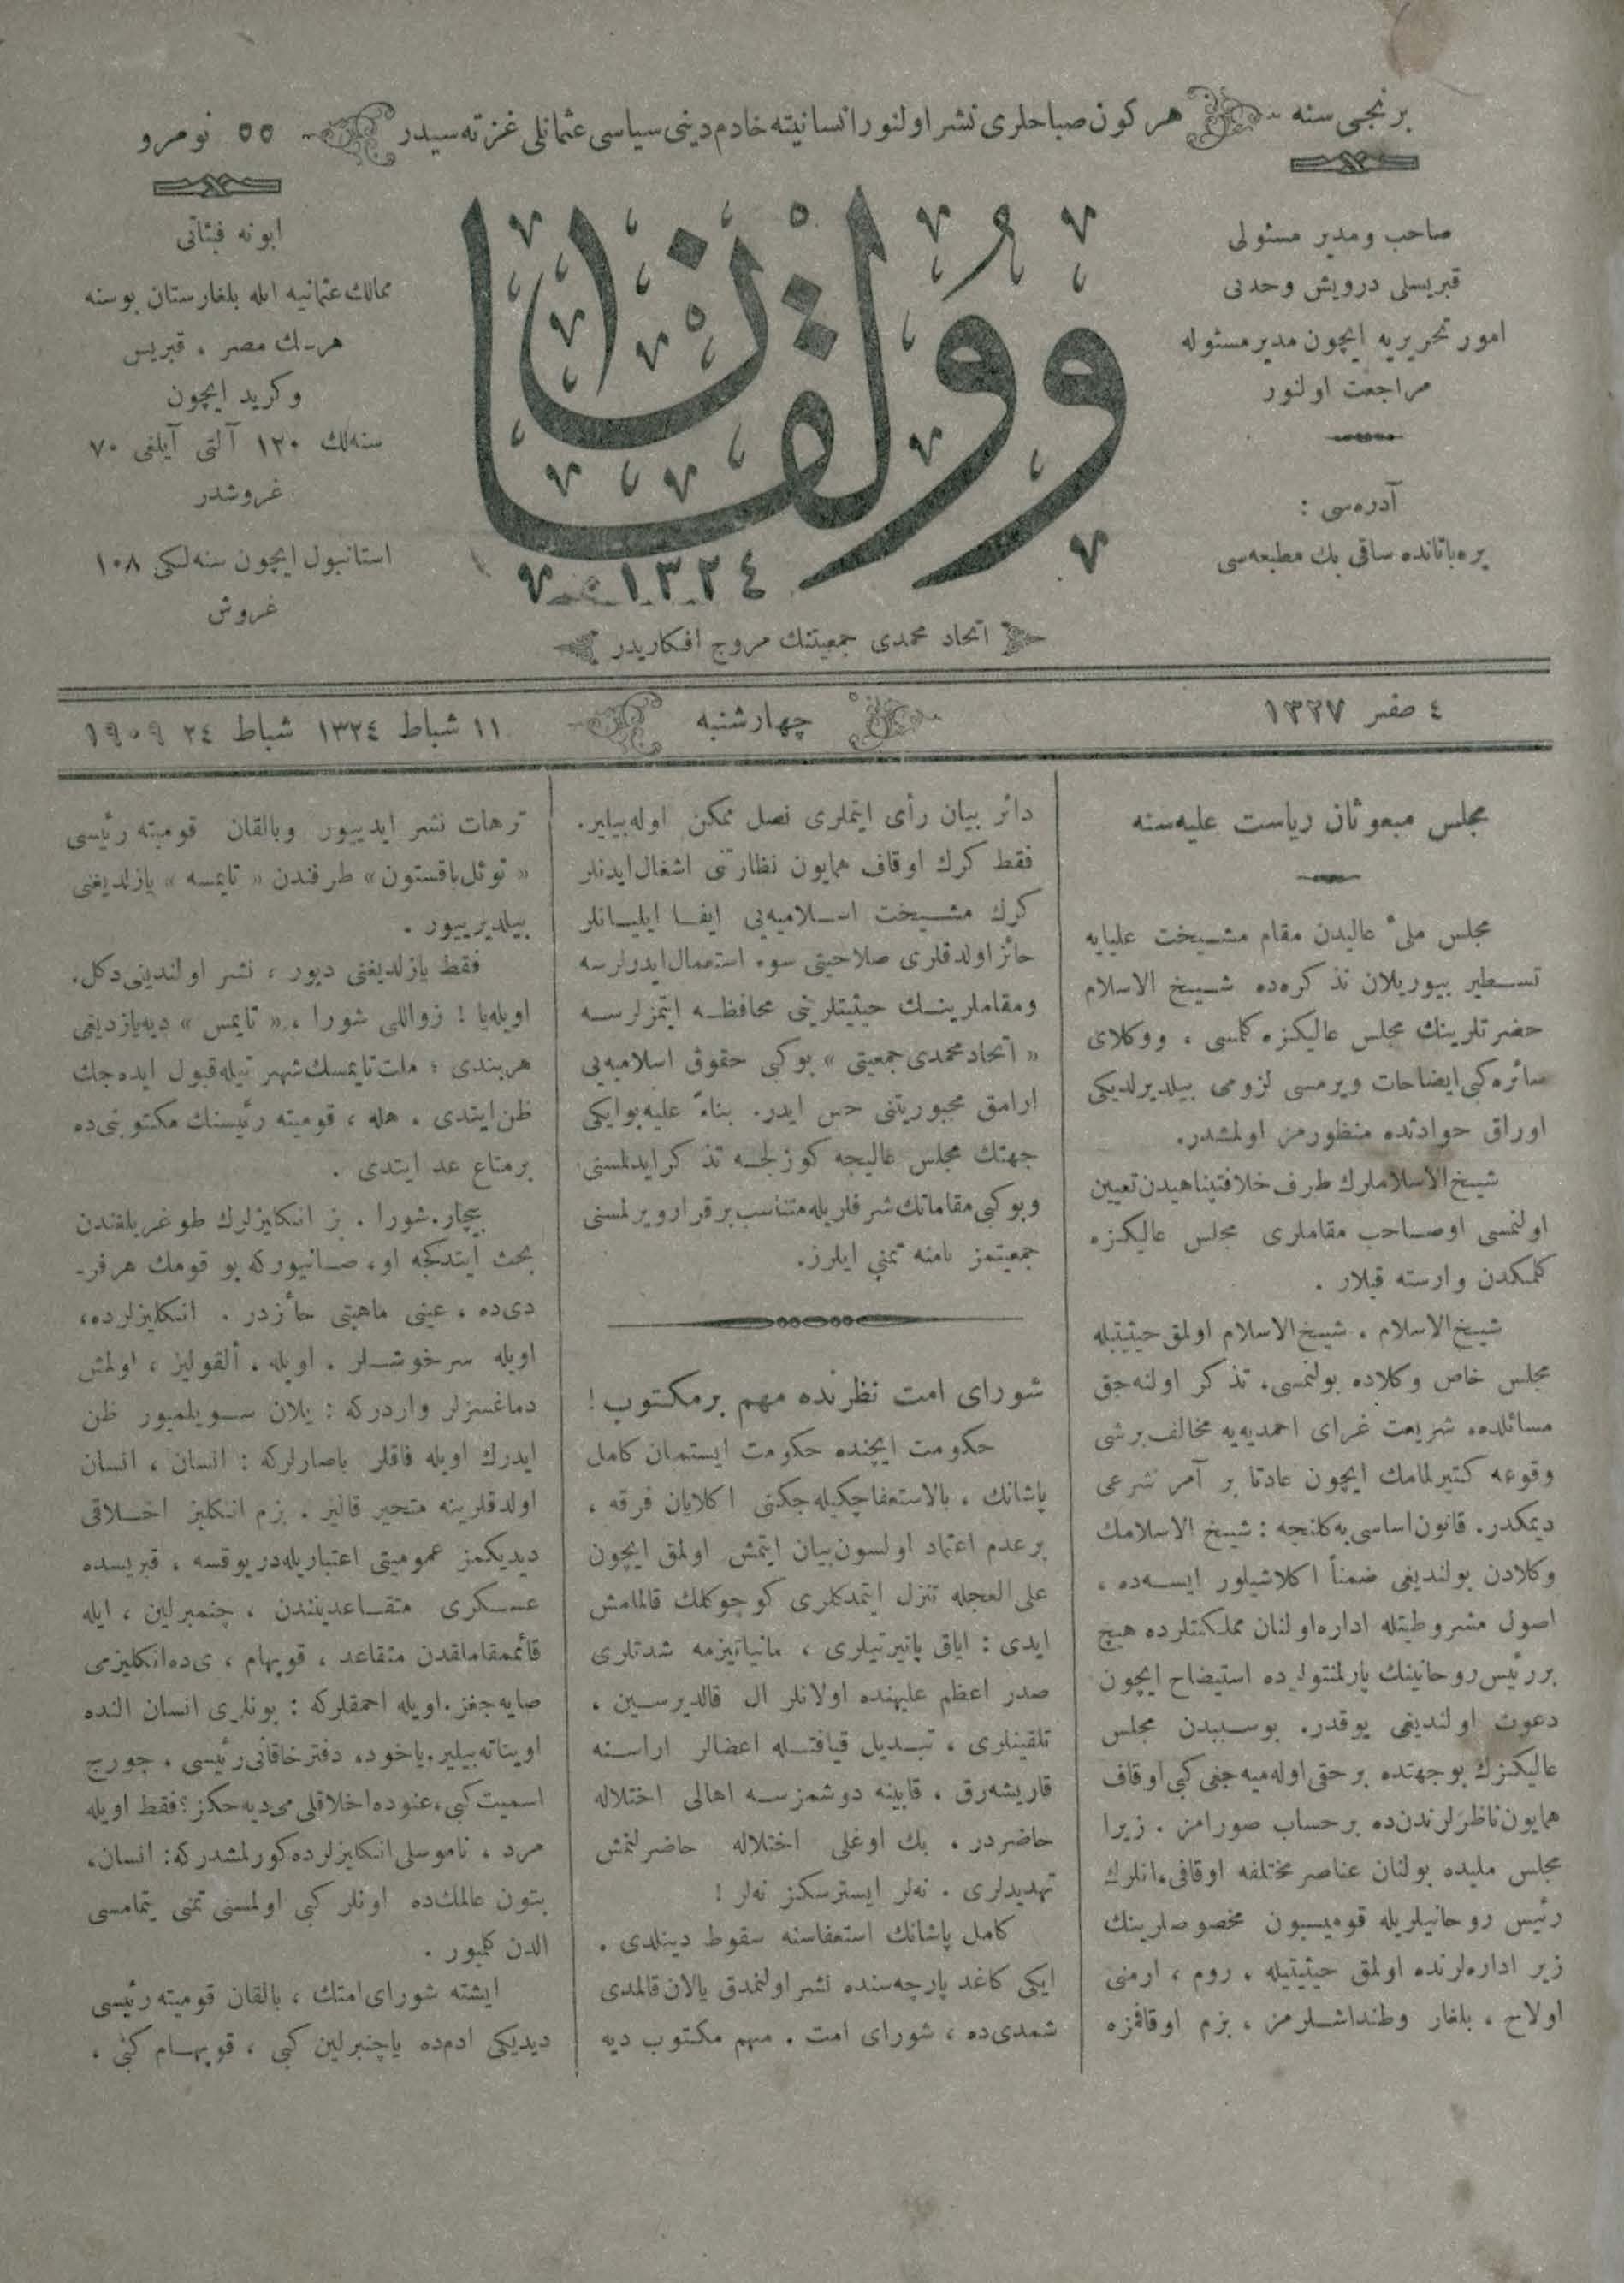 برنجی سنه
هر كون صباحلری نشر اولنور انسانیته خادم دینی سیاسی عثمانلی غزته سیدر
٥٥ نومرو
صاحب ومدیر مسئولی
قبریسلی درویش وحدتی
امور تحریریه ایچون مدیر مسئوله
مراجعت اولنور
آدره‌سی :
یره‌باتانده ساقی بك مطبعه‌سی
وولقان
١٣٢٤
ابونه فیئاتی
ممالك عثمانیه ایله بلغارستان بوسنه
هرسك مصر ، قبریس
وكرید ایچون
سنه‌لك ١٢٠ آلتی آیلغی ٧٠
غروشدر
استانبول ایچون سنه‌لكی ١٠٨
غروش
اتحاد محمدی جمعیتنك مروج افكاریدر
٤ صفر ١٣٢٧
چهارشنبه
١١ شباط ١٣٢٤ شباط ٢٤ ١٩٠٩
مجلس مبعوثان ریاست علیه‌سنه
مجلس ملئ عالیدن مقام مشیخت علیایه
تسطیر بیوریلان تذكره‌ده شیخ الاسلام
حضرتلرینك مجلس عالیكزه كلمسی ، ووكلای
سائره كبی ایضاحات ویرمسی لزومی بیلدیرلدیكی
اوراق حوادثده منظورمز اولمشدر.
شیخ الاسلاملرك طرف خلافتپناهیدن تعیین
اولنمسی اوصاحب مقاملری مجلس عالیكزه
كلمكدن وارسته قیلار .
شیخ الاسلام ، شیخ الاسلام اولمق حیثیتیله
مجلس خاص وكلاده بولنمسی، تذكر اولنه‌جق
مسائلده، شریعت غرای احمدیه‌یه مخالف برشی
وقوعه كتیرلمامك ایچون عادتا بر آمر شرعی
دیمكدر. قانون اساسی‌یه كلنجه : شیخ الاسلامك
وكلادن بولندیغی ضمناً اكلاشیلور ایسه‌ده ،
اصول مشروطیتله اداره اولنان مملكتلرده هیچ
بررئیس روحانینك پارلمنتولرده استیضاح ایچون
دعوت اولندیغی یوقدر. بوسببدن مجلس
عالیكزك بوجهتده برحقی اوله‌میه‌جغی كبی اوقاف
همایون ناظرلرندن‌ده برحساب صورامز . زیرا
مجلس ملیده بولنان عناصر مختلفه اوقافی، انلرك
رئیس روحانیلریله قومیسیون مخصوصلرینك
زیر اداره‌لرنده اولمق حیثیتیله ، روم ، ارمنی
اولاح ، بلغار وطنداشلرمز ، بزم اوقافمزه
دائر بیان رأی ایتملری نصل ممكن اوله‌بیلیر.
فقط كرك اوقاف همایون نظارتنی اشغال‌ایدنلر
كرك مشیخت اسلامیه‌یی ایفا ایلیانلر
حائز اولدقلری صلاحیتی سوء استعمال ایدرلرسه
ومقاملرینك حیثیتلرینی محافظه ایتمزلرسه
« اتحاد محمدی جمعیتی » بوكبی حقوق اسلامیه‌یی
ارامق مجبوریتنی حس ایدر. بناءً علیه بوایكی
جهتك مجلس عالیجه كوزلجه تذكر ایدلمسنی
وبوكبی مقاماتك شرفلریله متناسب برقرار ویرلمسنی
جمعیتمز نامنه تمنی ایلرز.
شورای امت نظرنده مهم برمكتوب !
حكومت ایچنده حكومت ایستمیان كامل
پاشانك ، بالاستعفا چكیله‌جكنی اكلایان فرقه ،
برعدم اعتماد اولسون بیان ایتمش اولمق ایچون
علی العجله تنزل ایتمدكلری كوچوكلك قالمامش
ایدی : ایاق پاتیرتیلری ، مانیاتیزمه شدتلری
صدر اعظم علیهنده اولانلر ال قالدیرسین ،
تلقینلری ، تبدیل قیافتله اعضالر اراسنه
قاریشه‌رق ، قابینه دوشمزسه اهالی اختلاله
حاضردر ، بك اوغلی اختلاله حاضرلنمش
تهدیدلری . نه‌لر ایسترسكز نه‌لر !
كامل پاشانك استعفاسنه سقوط دینلدی .
ایكی كاغد پارچه‌سنده نشر اولنمدق یالان قالمدی
شمدی‌ده ، شورای امت ، مهم مكتوب دیه
ترهات نشر ایدییور وبالقان قومیته رئیسی
« نوئل‌باقستون» طرفندن « تایمسه » یازلدیغنی
بیلدیرییور .
فقط یازلدیغنی دیور ، نشر اولندیغنی دكل.
اویله‌یا ! زواللی شورا ، « تایمس » دیه‌یازدیغی
هربندی ، ملت تایمسك شهرتیله قبول ایده‌جك
ظن ایتدی . هله ، قومیته رئیسنك مكتوبنی‌ده
برمتاع عد ایتدی .
بیچاره شورا . بز انكلیزلرك طوغریلغندن
بحث ایتدكجه او، صانیوركه بو قومك هرفر-
دی‌ده ، عینی ماهیتی حائزدر . انكلیزلرده،
اویله سرخوشلر ، اویله ، ألقولیز ، اولمش
دماغسزلر واردركه : یلان سویلمیور ظن
ایدرك اویله فاقلر باصارلركه : انسان ، انسان
اولدقلرینه متحیر قالیر . بزم انكلیز اخلاقی
دیدیكمز عمومیتی اعتباریله‌در یوقسه ، قبریسده
عسكری متقاعدیندن ، چنمبرلین ، ایله
قائممقاملقدن متقاعد ، قوبهام ، ی‌ده انكلیزمی
صایه‌جغز. اویله احمقلركه : بونلری انسان النده
اویناته‌بیلیر. یاخود، دفتر خاقانی رئیسی ، جورج
اسمیت كبی، عنوده اخلاقلی‌می دیه‌جكز؟ فقط اویله
مرد ، ناموسلی انكلیزلرده كورلمشدركه : انسان،
بتون عالمك‌ده اونلر كبی اولمسنی تمنی یتمامسی
الدن كلمیور .
ایشته شورای امتك ، بالقان قومیته رئیسی
دیدیكی ادم‌ده یاچنبرلین كبی ، قوبهام كبی ،